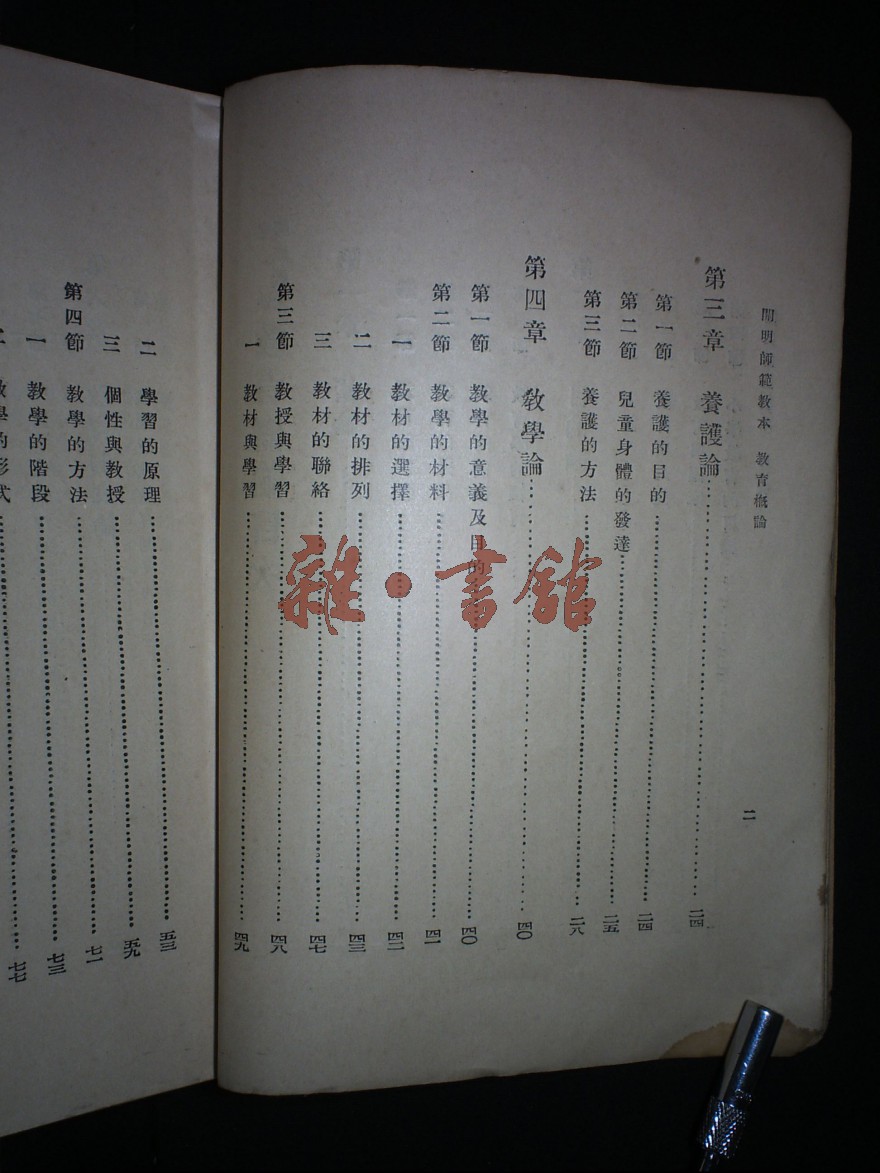 開明師範教本 教育概論
二
第三章 養護論 二四
第一節 養護的目的 二四
第二節 兒童身體的發達 二五
第三節 養護的方法 二八
第四章 教學論 四〇
第一節 教學的意義及目的 四〇
第二節 教學的材料 四一
一 教材的選擇 四二
二 教材的排列 四三
三 教材的聯絡 四七
第三節 教授與學習 四八
一 教材與學習 四九
二 學習的原理 五三
三 個性與教授 五九
第四節 教學的方法 七一
一 教學的階段 七三
學的形式 七七
雜·書館